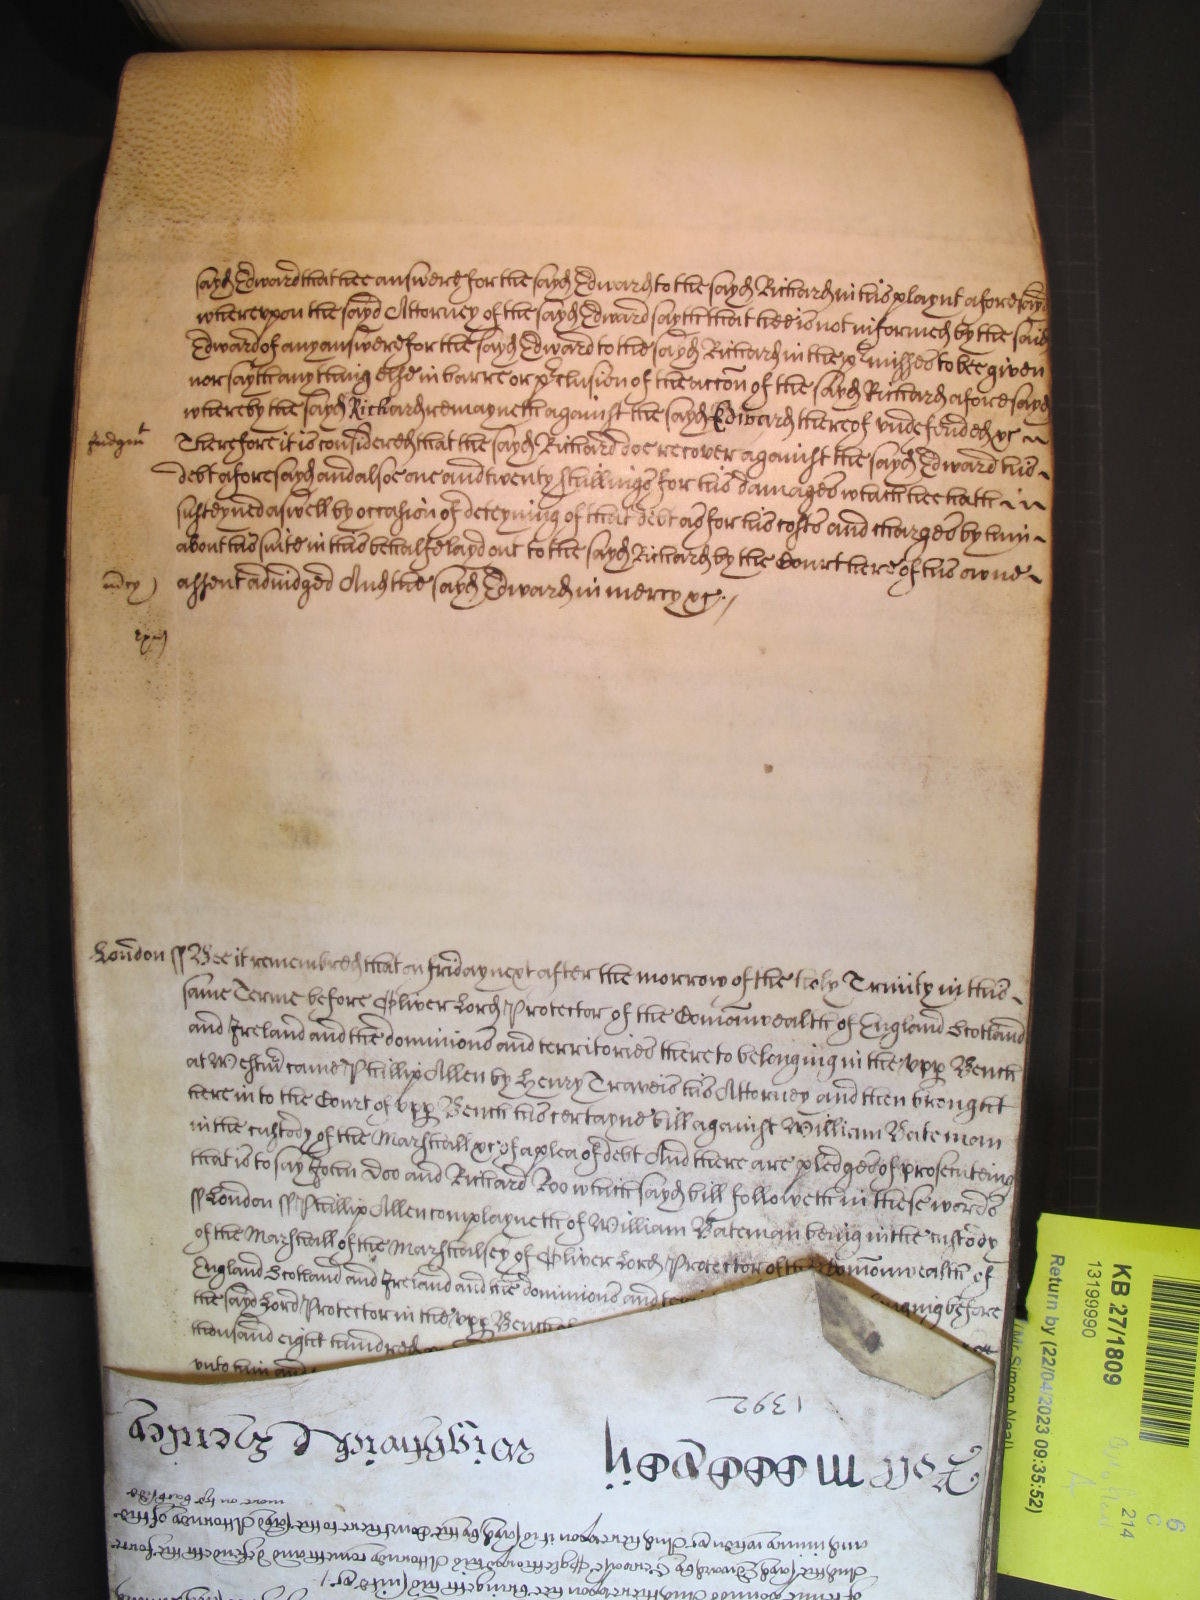 sayd Edward that hee answere for the sayd Edward to the sayd Richard in his playnt aforesayd
whereupon the sayd Attorney of the sayd Edward sayth that hee is not informed by the said
Edward of any answere for the sayd Edward to the sayd Richard in the pmisses to bee given
nor sayth any thing else in barre or pclusion of the accon of the sayd Richard aforesayd
whereby the sayd Richard remayneth against the sayd Edward thereof undefended &c
Judgmt Therefore it is considered that the sayd Richard doe recover against the sayd Edward his
debt aforesayd and alsoe one and twenty shillings for his damages which hee hath
susteyned aswell by occasion of deteyning of that debt as for his costs and charges by him
about his suite in this behalfe layd out to the sayd Richard by the Court here of his owne
mcy assent adiudged And the sayd Edward in mercy &c
London ss Bee it remembred that on friday next after the morrow of the holy Trinity in this
same Terme before Oliver Lord Protector of the Comonwealth of England Scotland
and Ireland and the dominions and territories thereto belonging in the upp Bench
at Westm came Phillip Allen by Henry Travers his Attorney and then brought
here into the Court of upp Bench his certayne bill against William Bateman
in the custody of the Marshall &c of a plea of debt And there are pledges of prosecuteing
that is to say John Doo and Richard Roo which sayd bill followeth in these words
ss London ss Phillip Allen complayneth of William Bateman being in the custody
of the Marshall of the Marshalsey of Oliver Lord Protector of the Comonwealth of
England Scotland and Ireland and the dominions and before
the sayd Lord Protector in the upp Bench
thousand eight hundred
unto him and
1392
KB 27/1809
13199990
Return by (22/04/2023 09:35:52)
Mr Simon Neal
6
C
214